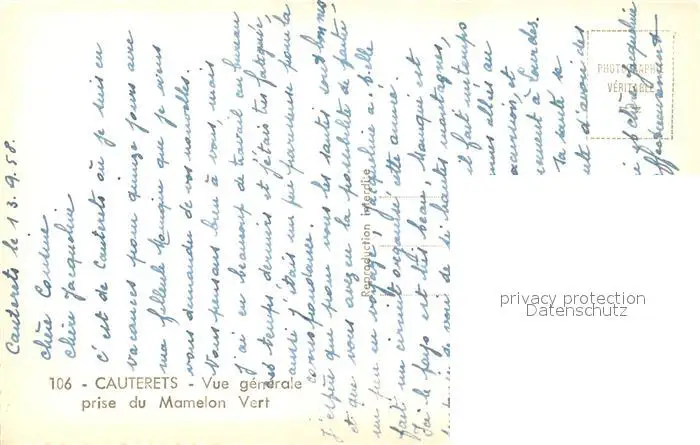 Cauterets le 13.9.58.
chère Cousine
chère Jacqueline
c'est de Cauterets où je suis en
vacances pour quinze jours avec
ma filleule Monique que je viens
vous demander de vos nouvelles.
Nous pensons bien à vous, mais
j'ai eu beaucoup de travail au bureau
ces temps derniers et j'étais très fatiguée,
aussi j'étais un peu paresseuse pour la
correspondance.
J'espère que pour vous les santés sont bonnes
et que vous avez eu la possibilité de faire
un peu un voyage, Jacqueline a-t-elle
fait un circuit organisé cette année.
Ici le pays est très beau, Monique est
de voir de si hautes montagnes,
il fait un temps
nous allées au
excursion, et
à Lourdes.
Sa santé se
d'avoir des
chère Jacqueline
affectueusement
PHOTOGRAPHIE
VÉRITABLE
Reproduction interdite
106 - CAUTERETS - Vue générale
prise du Mamelon Vert
privacy protection
Datenschutz